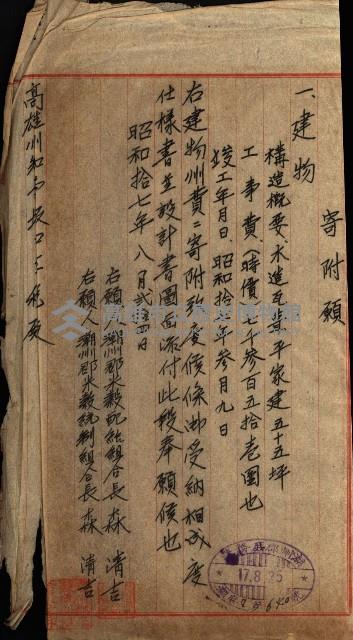 寄附願
一、建物
構造概要、木造瓦葺平家建五十五坪
工事費、(時價)七千參百五拾壱圓也
竣工年月日、昭和拾六年參月九日
右建物州費ニ寄附致度候條御受納相成度
仕樣書並設計書圖面添付此段奉願候也
昭和拾七年八月貳 四日
右願人潮州郡米穀配給組合長 森 清吉
右願人潮州郡米穀統制組合長 森 清吉
高雄州知事 坂口主税殿
17.8.25